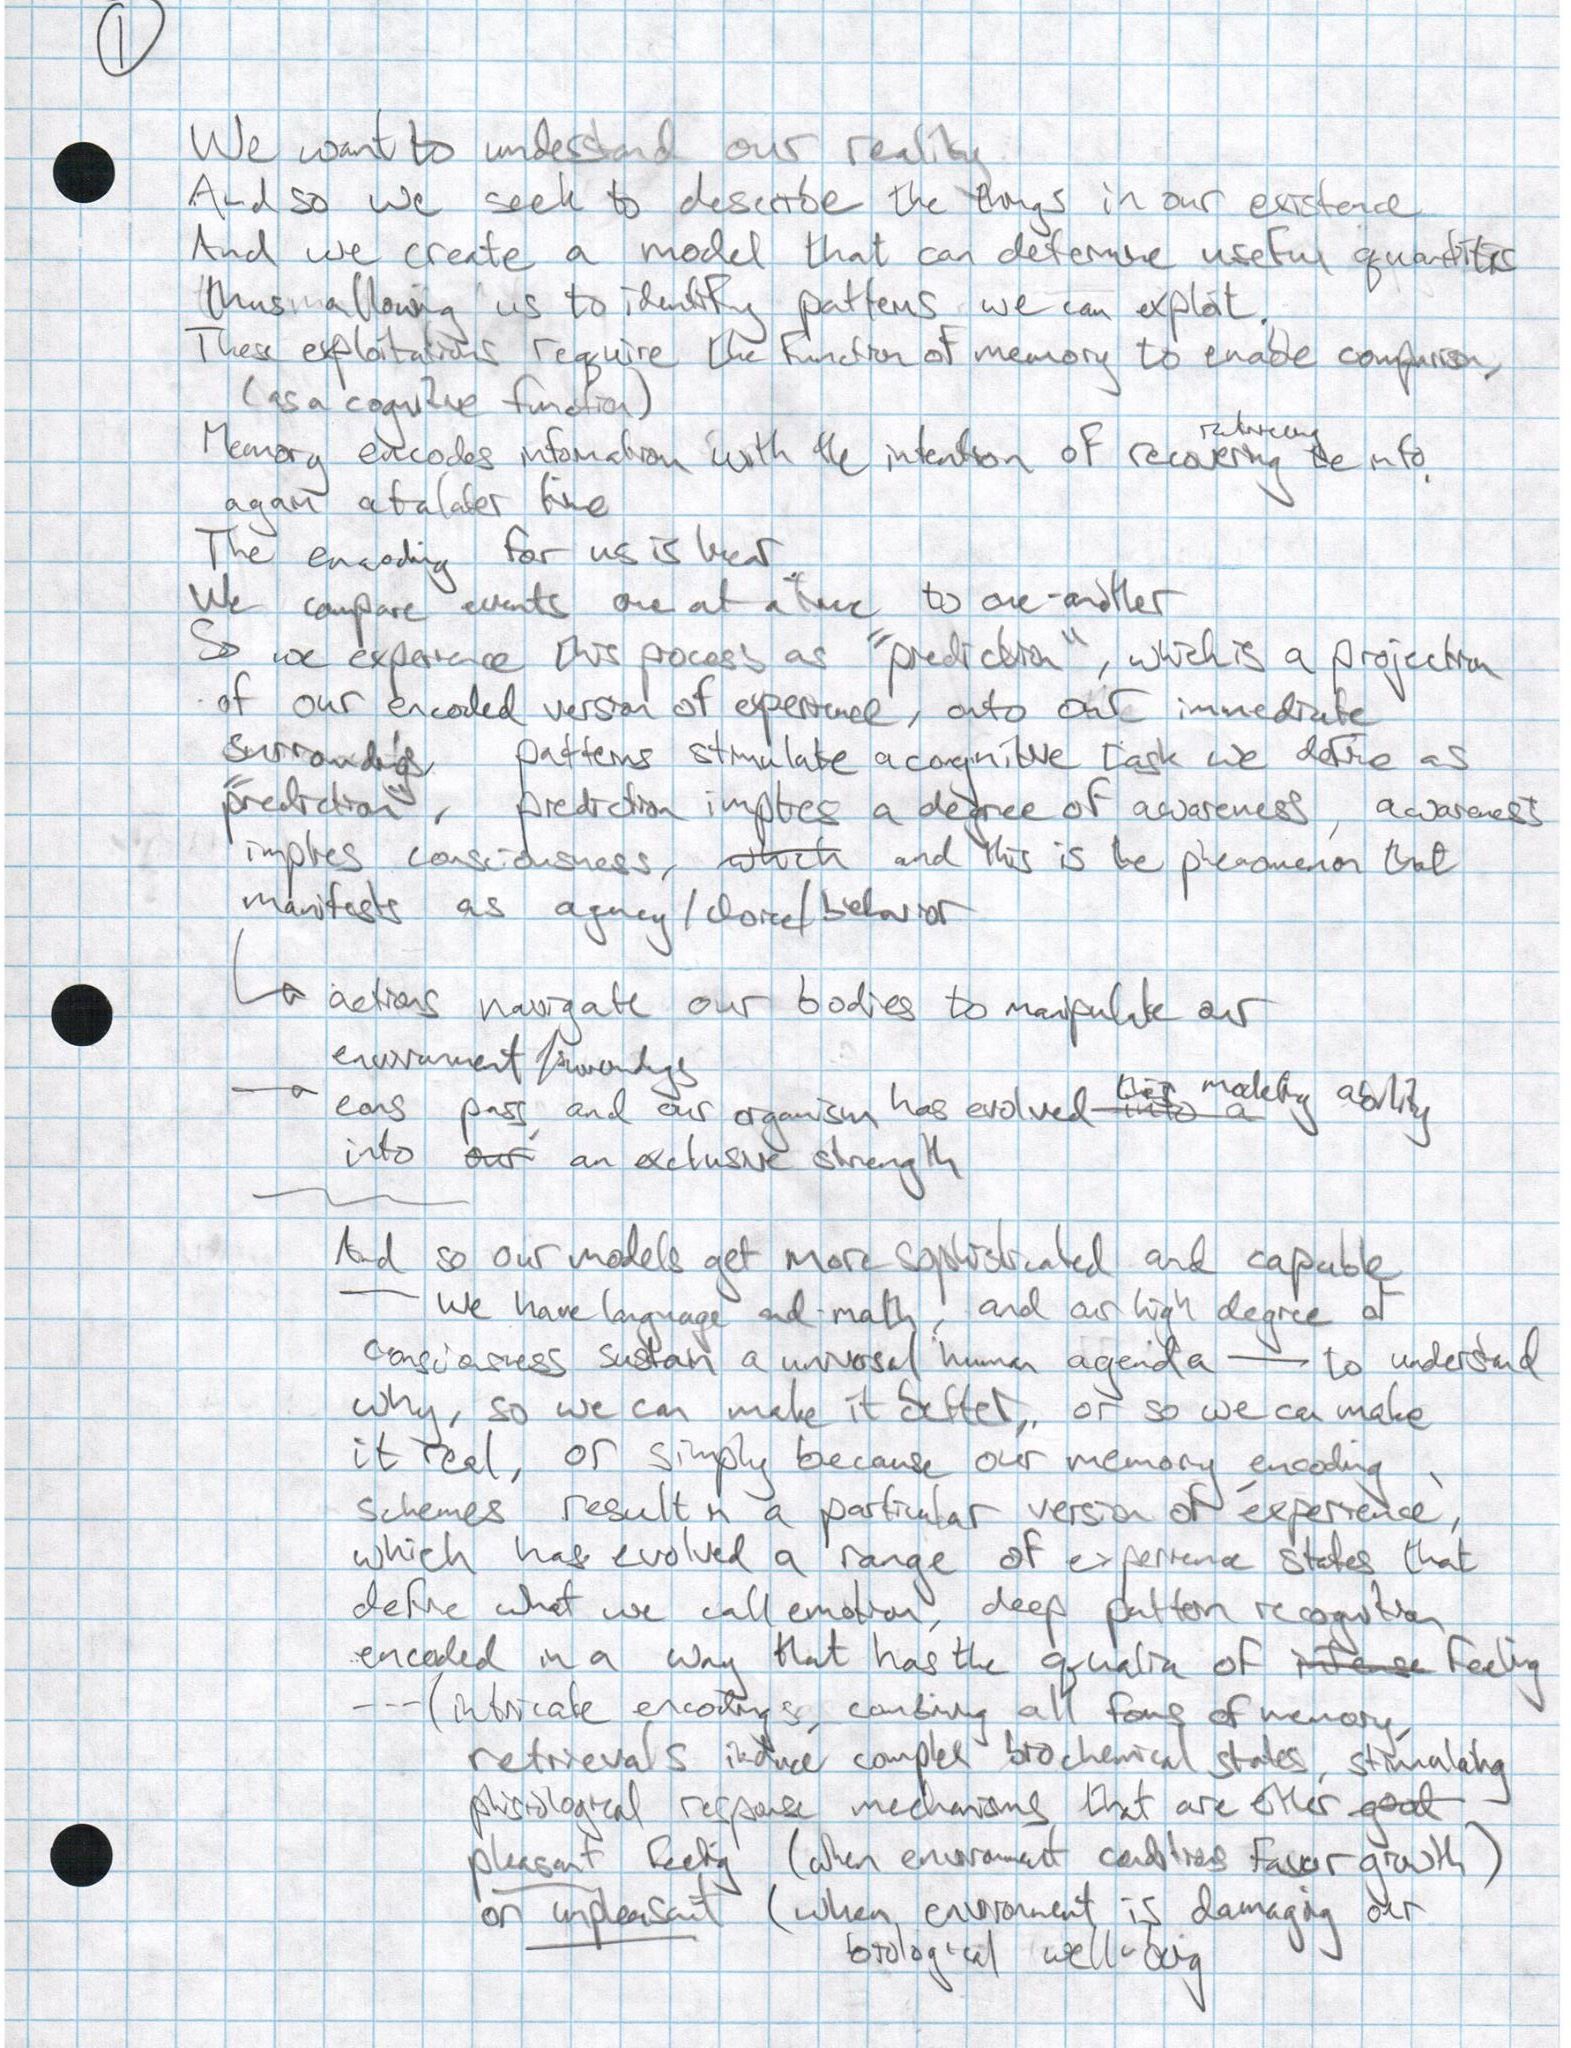 1
We want to understand our reality
And so we seek to describe the things in our existence
And we create a model that can determine useful quantities
thus allowing us to identify patterns we can exploit.
These exploitations require the function of memory to enable comparison,
(as a cognitive function)
retrieving
Memory encodes information with the intention of recovering the info.
again at a later time
The encoding for us is linear.
We compare events one at a time to one-another
So we experience this process as "prediction", which is a projection
of our encoded version of experience, onto our immediate
surroundings, patterns stimulate a cognitive task we define as
"prediction", prediction implies a degree of awareness, awareness
implies consciousness, which and this is the phenomenon that
manifests as agency/choice/behavior
actions navigate our bodies to manipulate our
environment/surroundings
this modeling ability
eons pass, and our organism has evolved into a
into our an exclusive strength
And so our models get more sophisticated and capable
— we have language and math, and our high degree of
consciousness sustain a universal human agenda — to understand
why, so we can make it better, or so we can make
it real, or simply because our memory encoding
schemes result in a particular version of experience,
which has evolved a range of experience states that
define what we call emotion, deep pattern recognition
encoded in a way that has the qualia of intense feeling
---(intricate encodings, combining all forms of memory,
retrievals induce complex biochemical states, stimulating
physiological response mechanisms that are either good
pleasant feeling (when environment conditions favor growth)
or unpleasant (when environment is damaging our
biological well-being